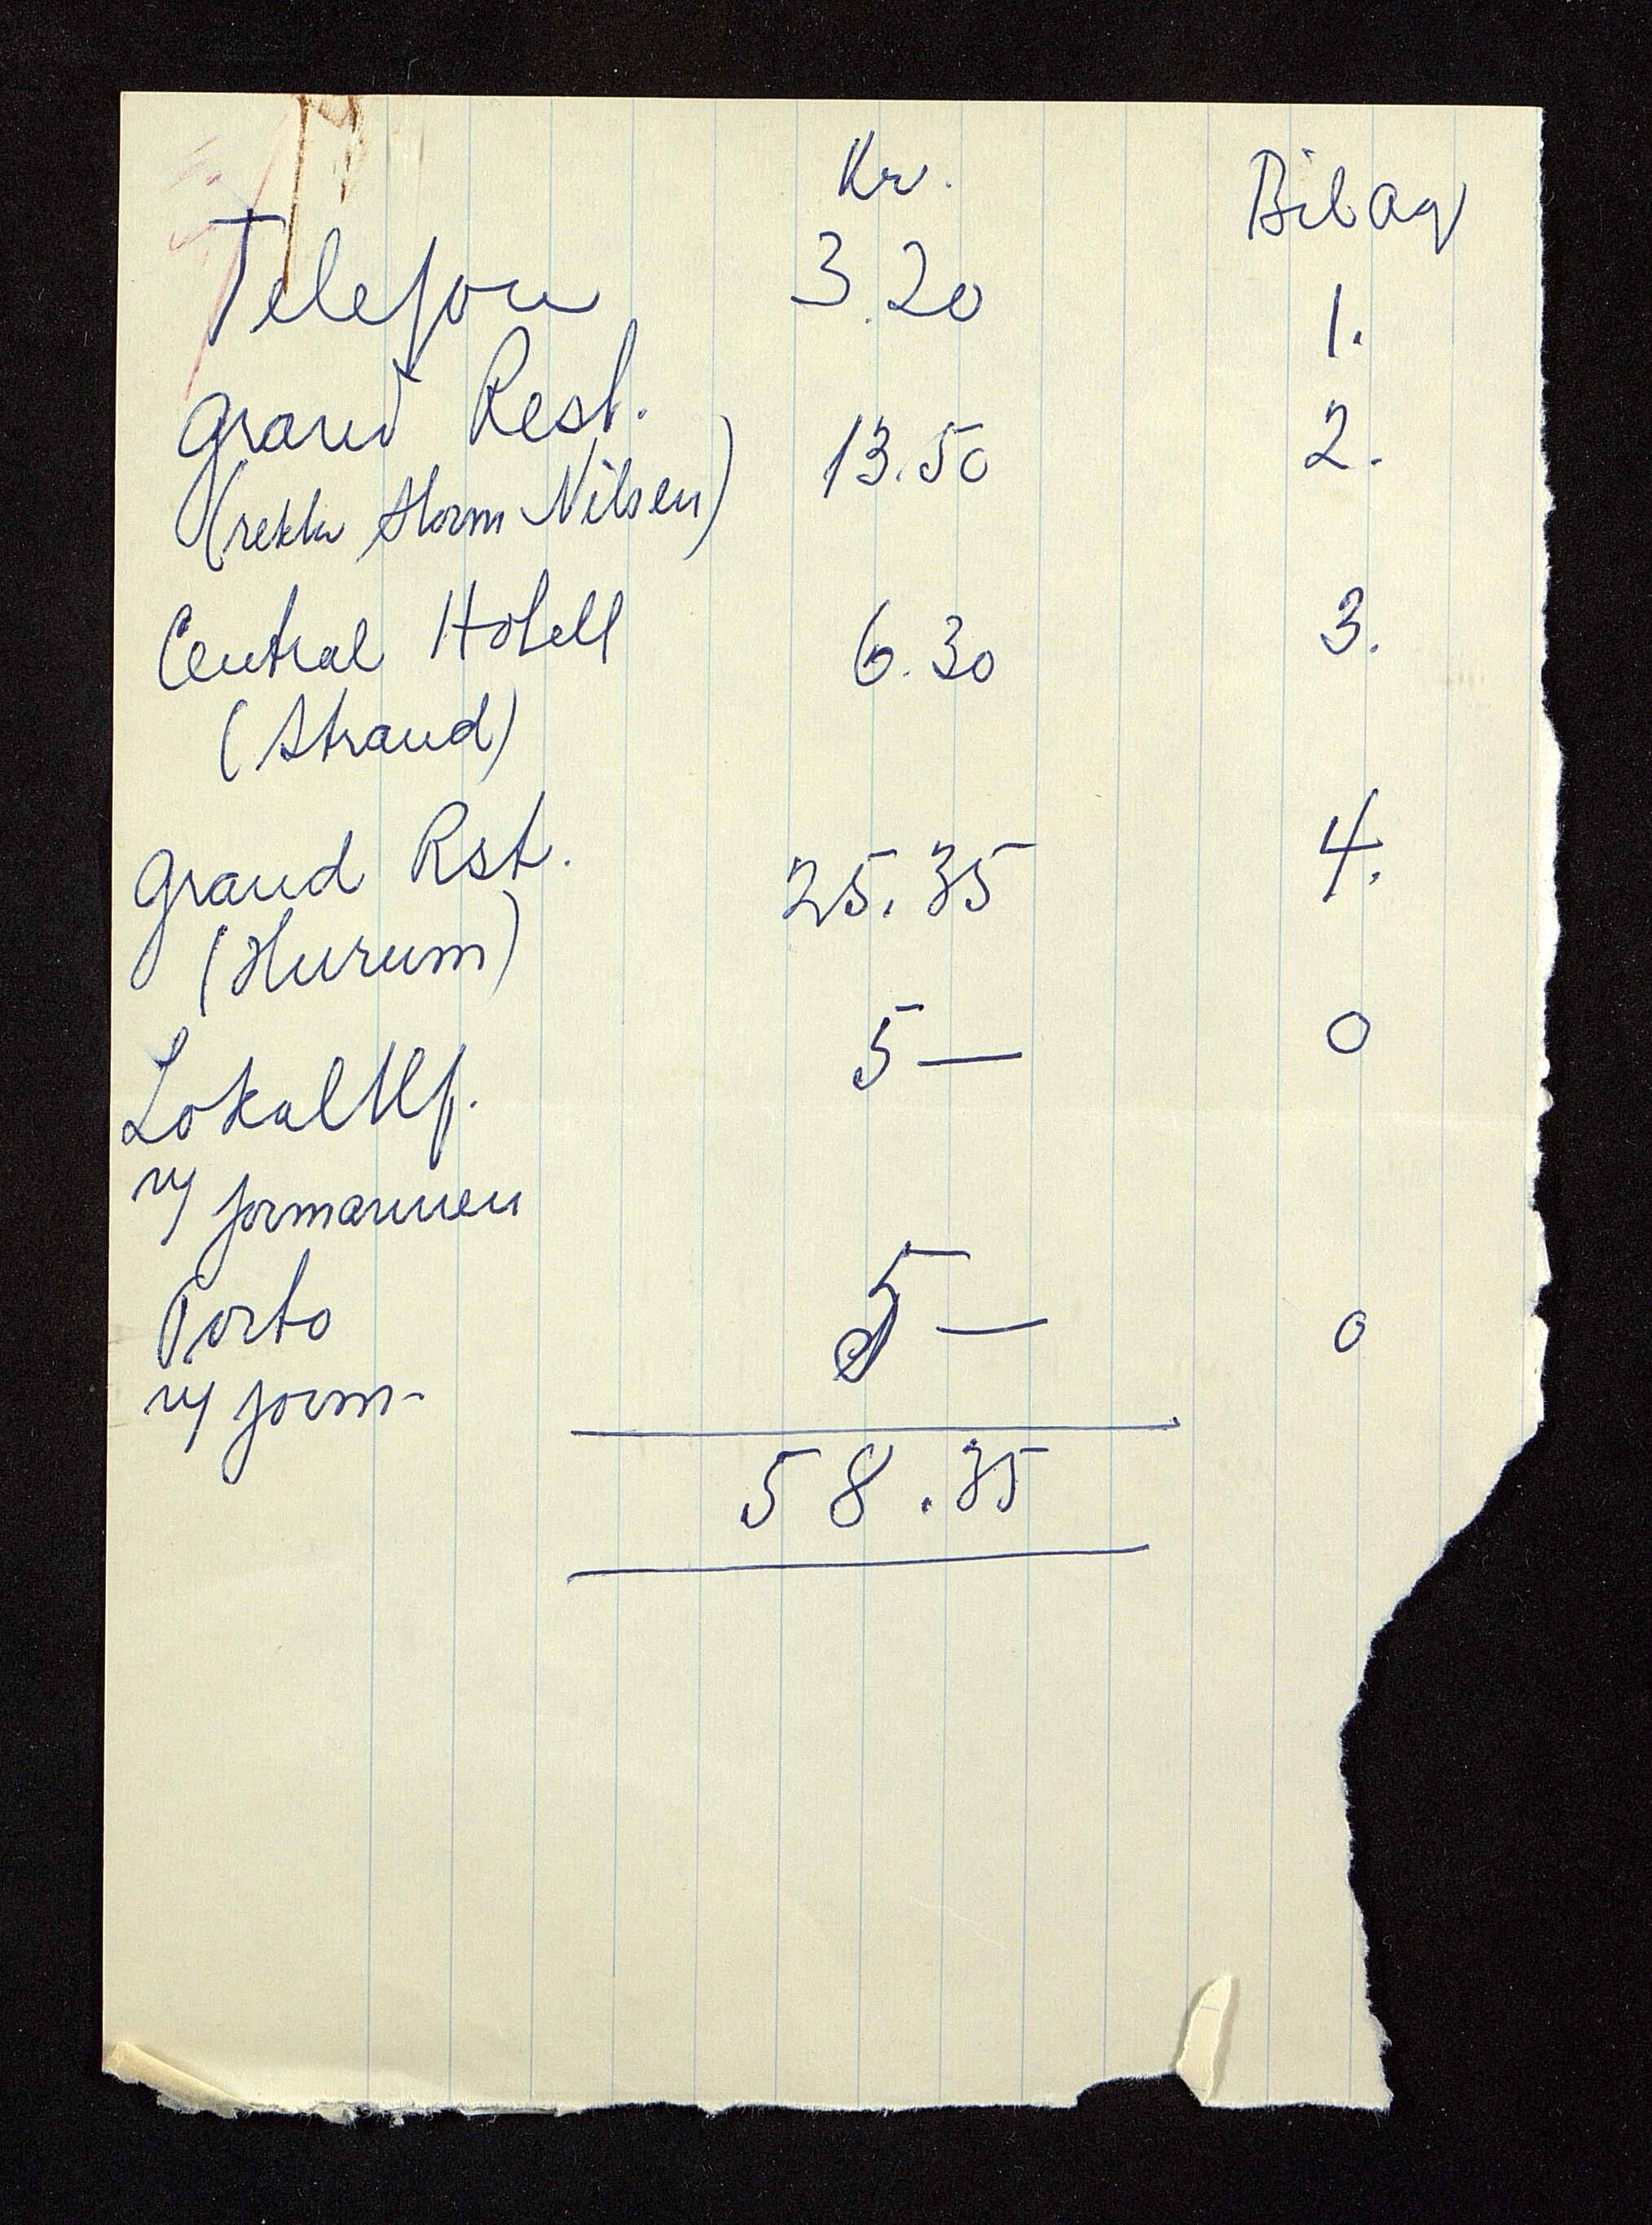 Kr. Bilag
Telefon 3.20 1.
Grand Rest. 13.50 2.
(rektor Storm Nilsen)
Central Hotell 6.30 3.
(Strand)
Grand Rst. 25.35 4.
(Hurum)
Lokaltlf. 5— 0
v/ formannen
Porto 5— 0
v/ form-
58.35